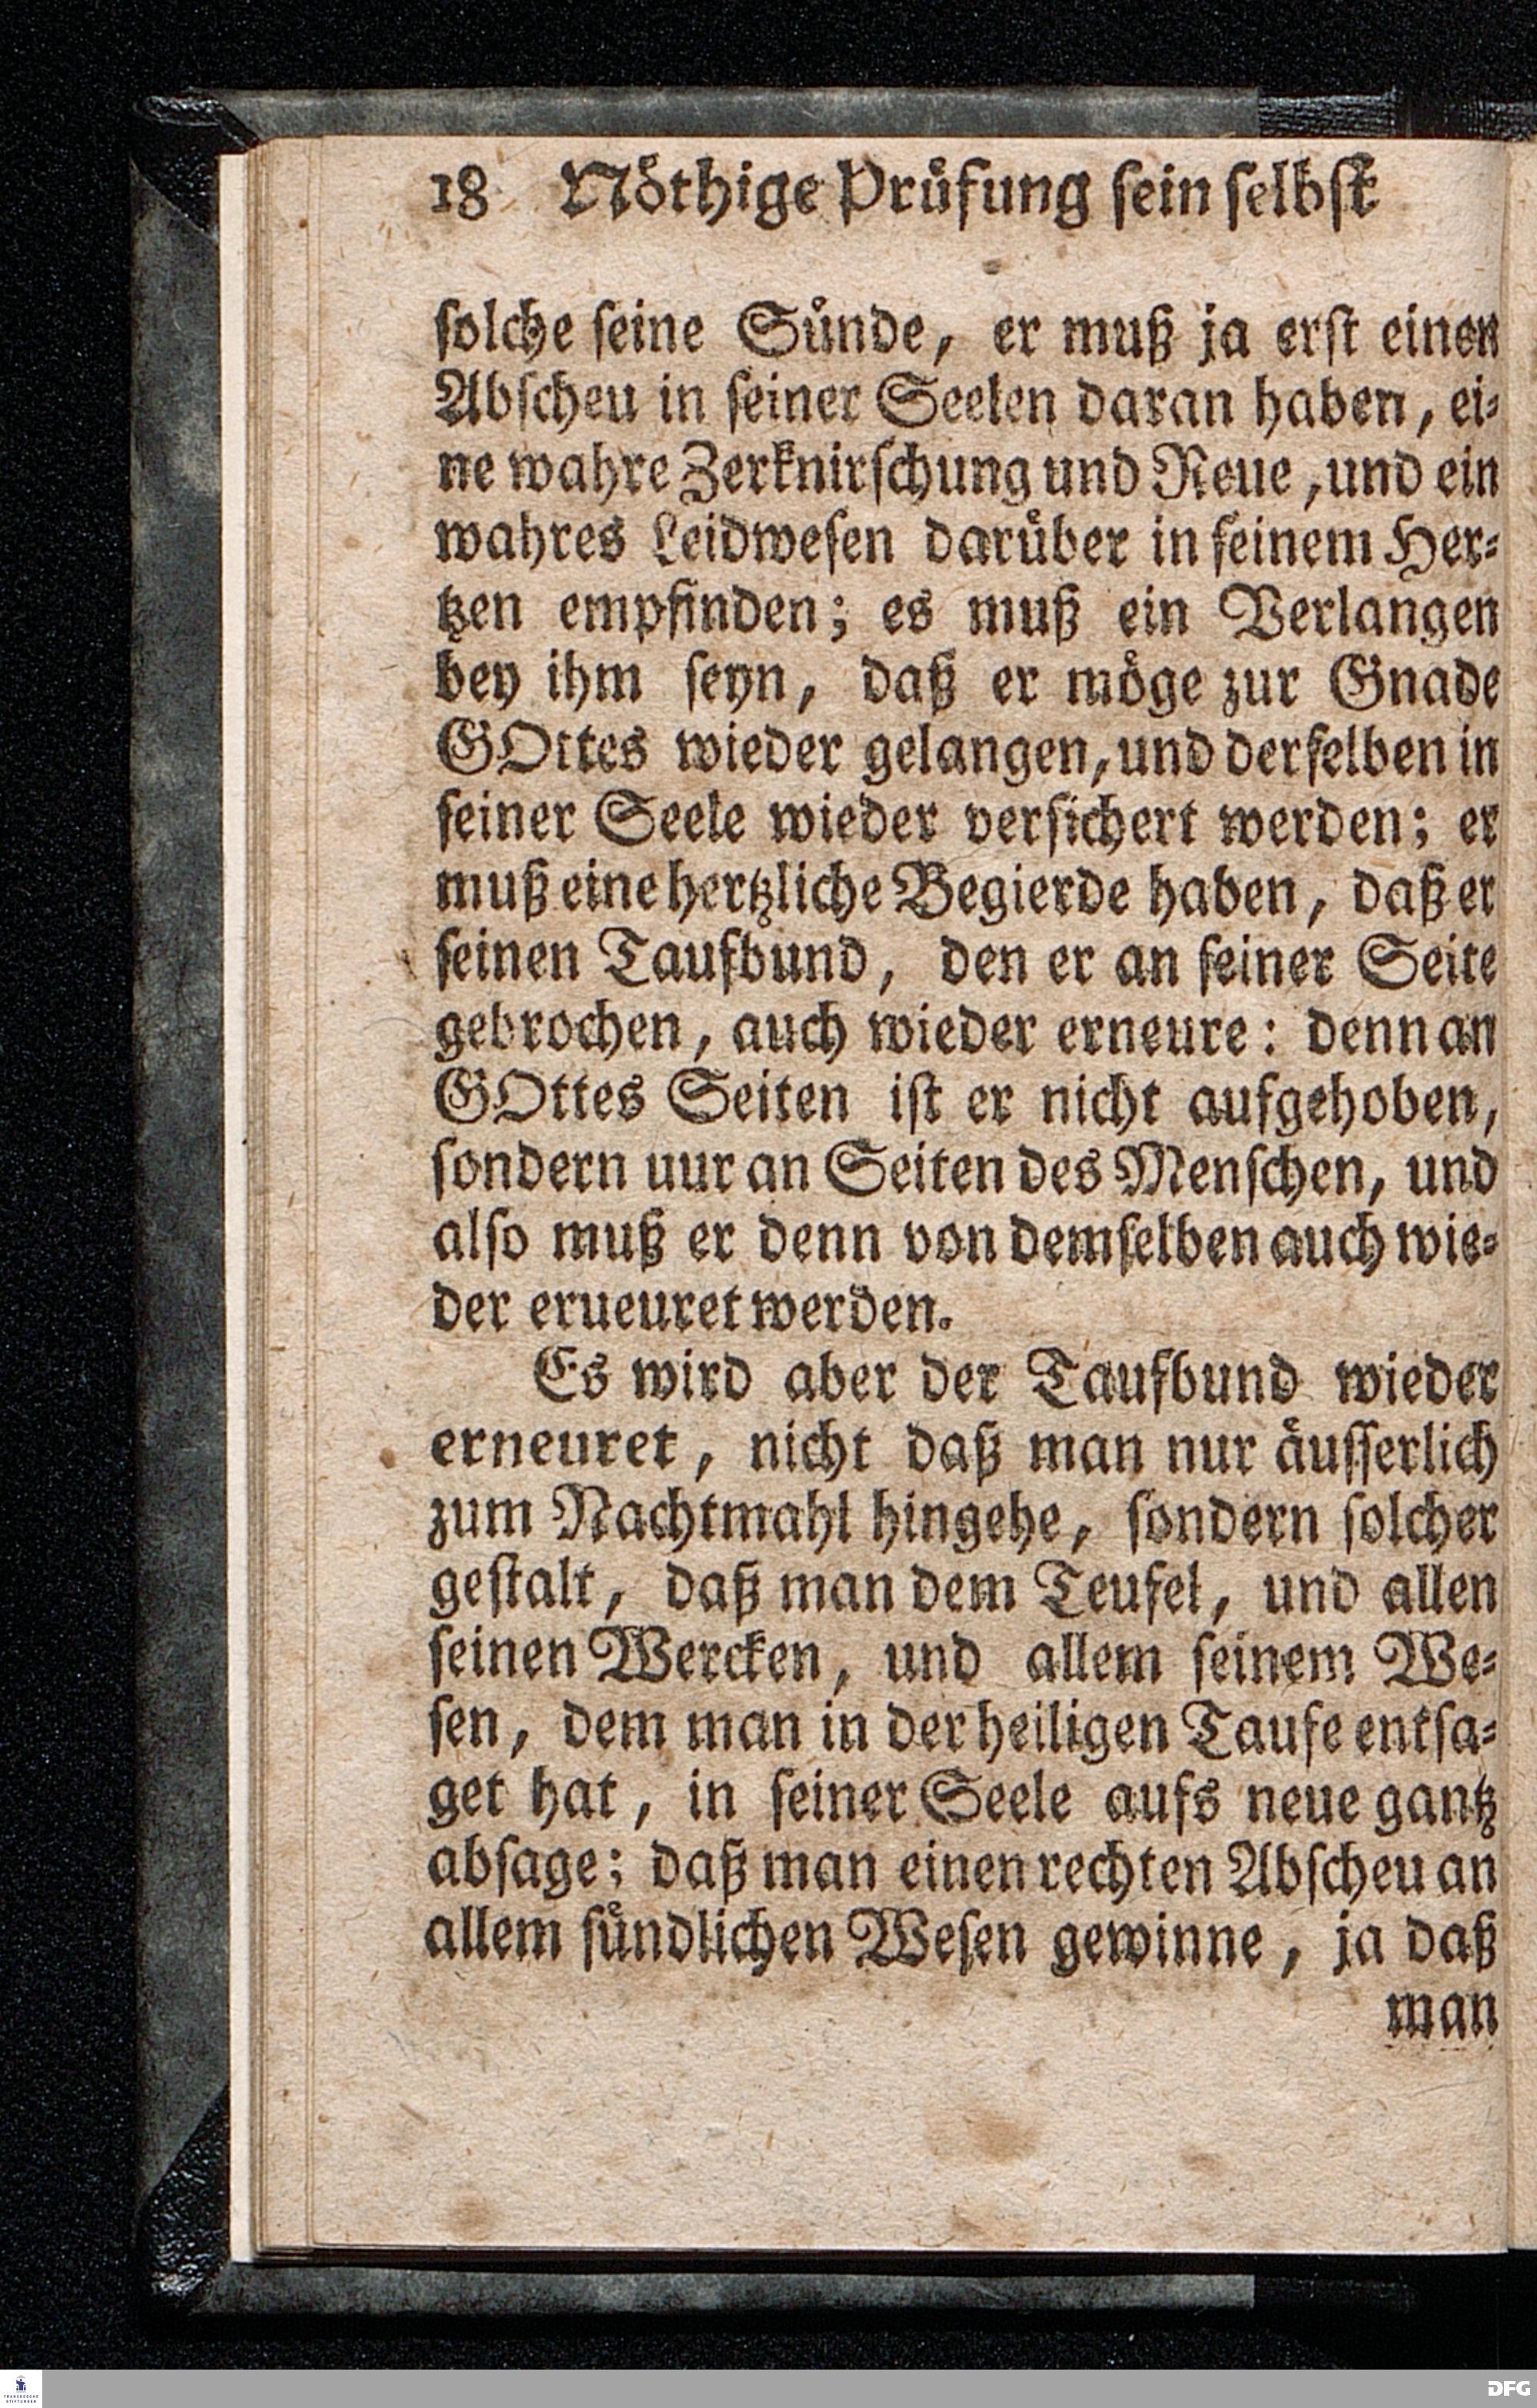 18 Nöthige Prüfung sein selbst
solche seine Sünde, er muß ja erst einen
Abscheu in seiner Seelen daran haben, ei-
ne wahre Zerknirschung und Reue, und ein
wahres Leidwesen darüber in seinem Her-
tzen empfinden; es muß ein Verlangen
bey ihm seyn, daß er möge zur Gnade
GOttes wieder gelangen, und derselben in
seiner Seele wieder versichert werden; er
muß eine hertzliche Begierde haben, daß er
seinen Taufbund, den er an seiner Seite
gebrochen, auch wieder erneure: denn an
GOttes Seiten ist er nicht aufgehoben,
sondern uur an Seiten des Menschen, und
also muß er denn von demselben auch wie-
der erueuret werden.
Es wird aber der Taufbund wieder
erneuret, nicht daß man nur äusserlich
zum Nachtmahl hingehe, sondern solcher
gestalt, daß man dem Teufel, und allen
seinen Wercken, und allem seinem We-
sen, dem man in der heiligen Taufe entsa-
get hat, in seiner Seele aufs neue gantz
absage; daß man einen rechten Abscheu an
allem sündlichen Wesen gewinne, ja daß
man
FRANCKESCHE
STIFTUNGEN
DFG